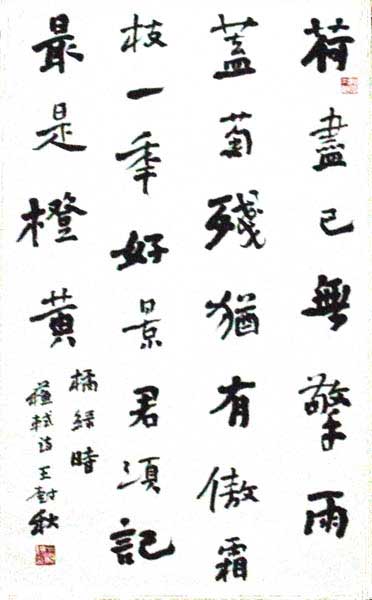 荷盡已無擎雨
蓋菊殘猶有傲霜
枝一年好景君須記
最是橙黃
橘綠時
蘇軾詩王秋